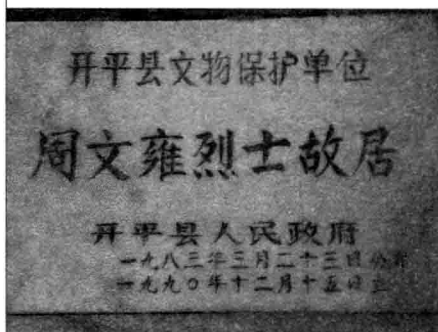 开平县文物保护单位
周文雍烈士故居
开平县人民政府
一九八三年三月二十三日公布
一九九〇年十二月十五日立